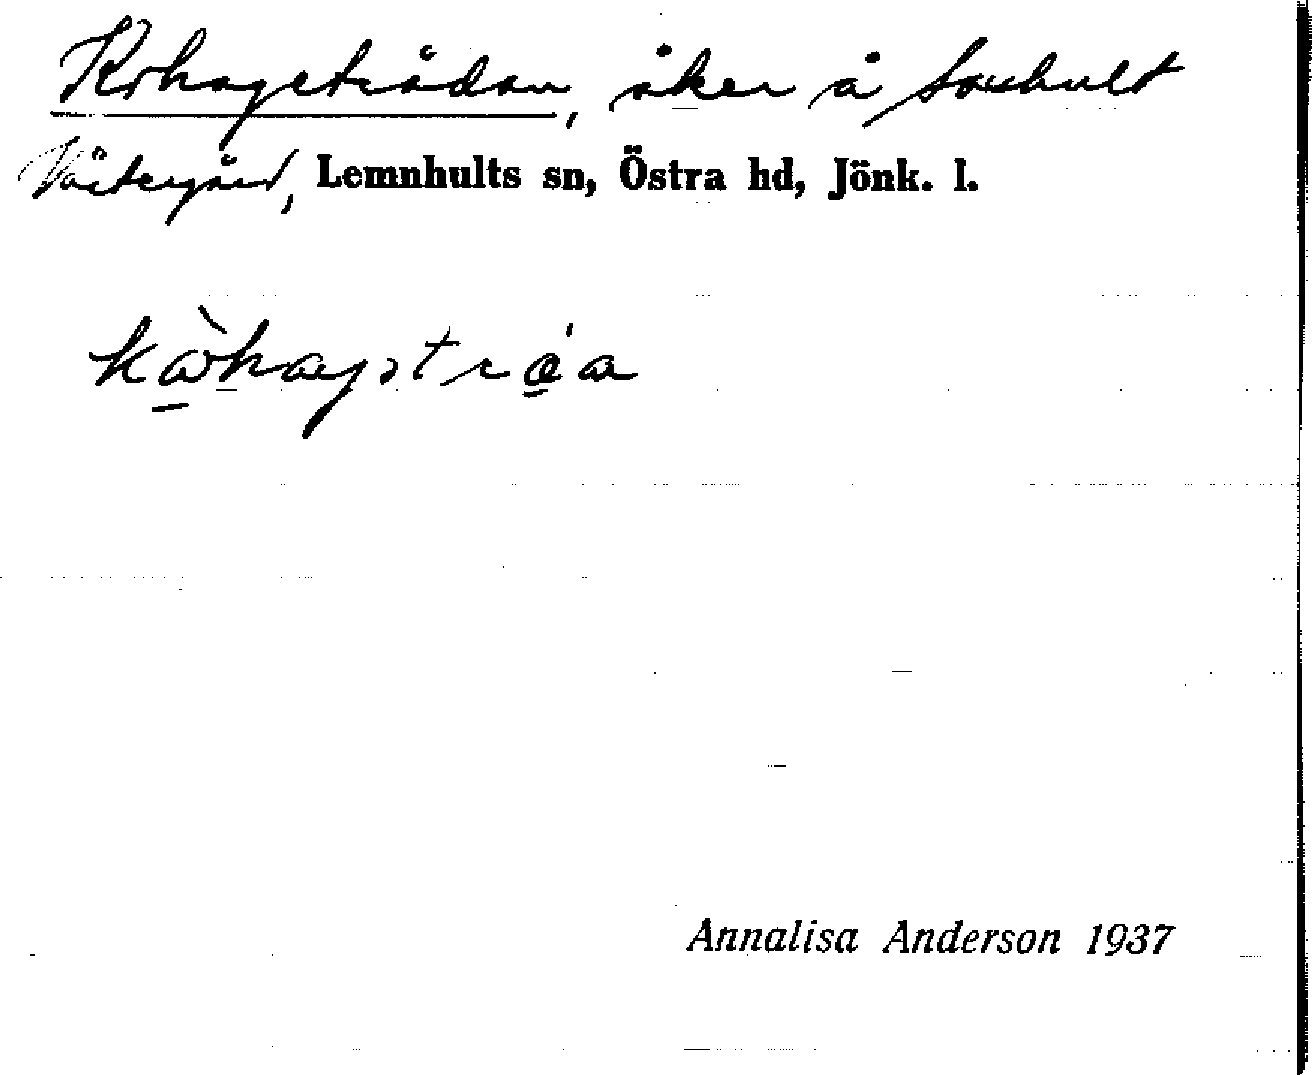 Kohageträdan, åker å Saxhult
Västergård, Lemnhults sn, Östra hd, Jönk. l.
Annalisa Anderson 1937